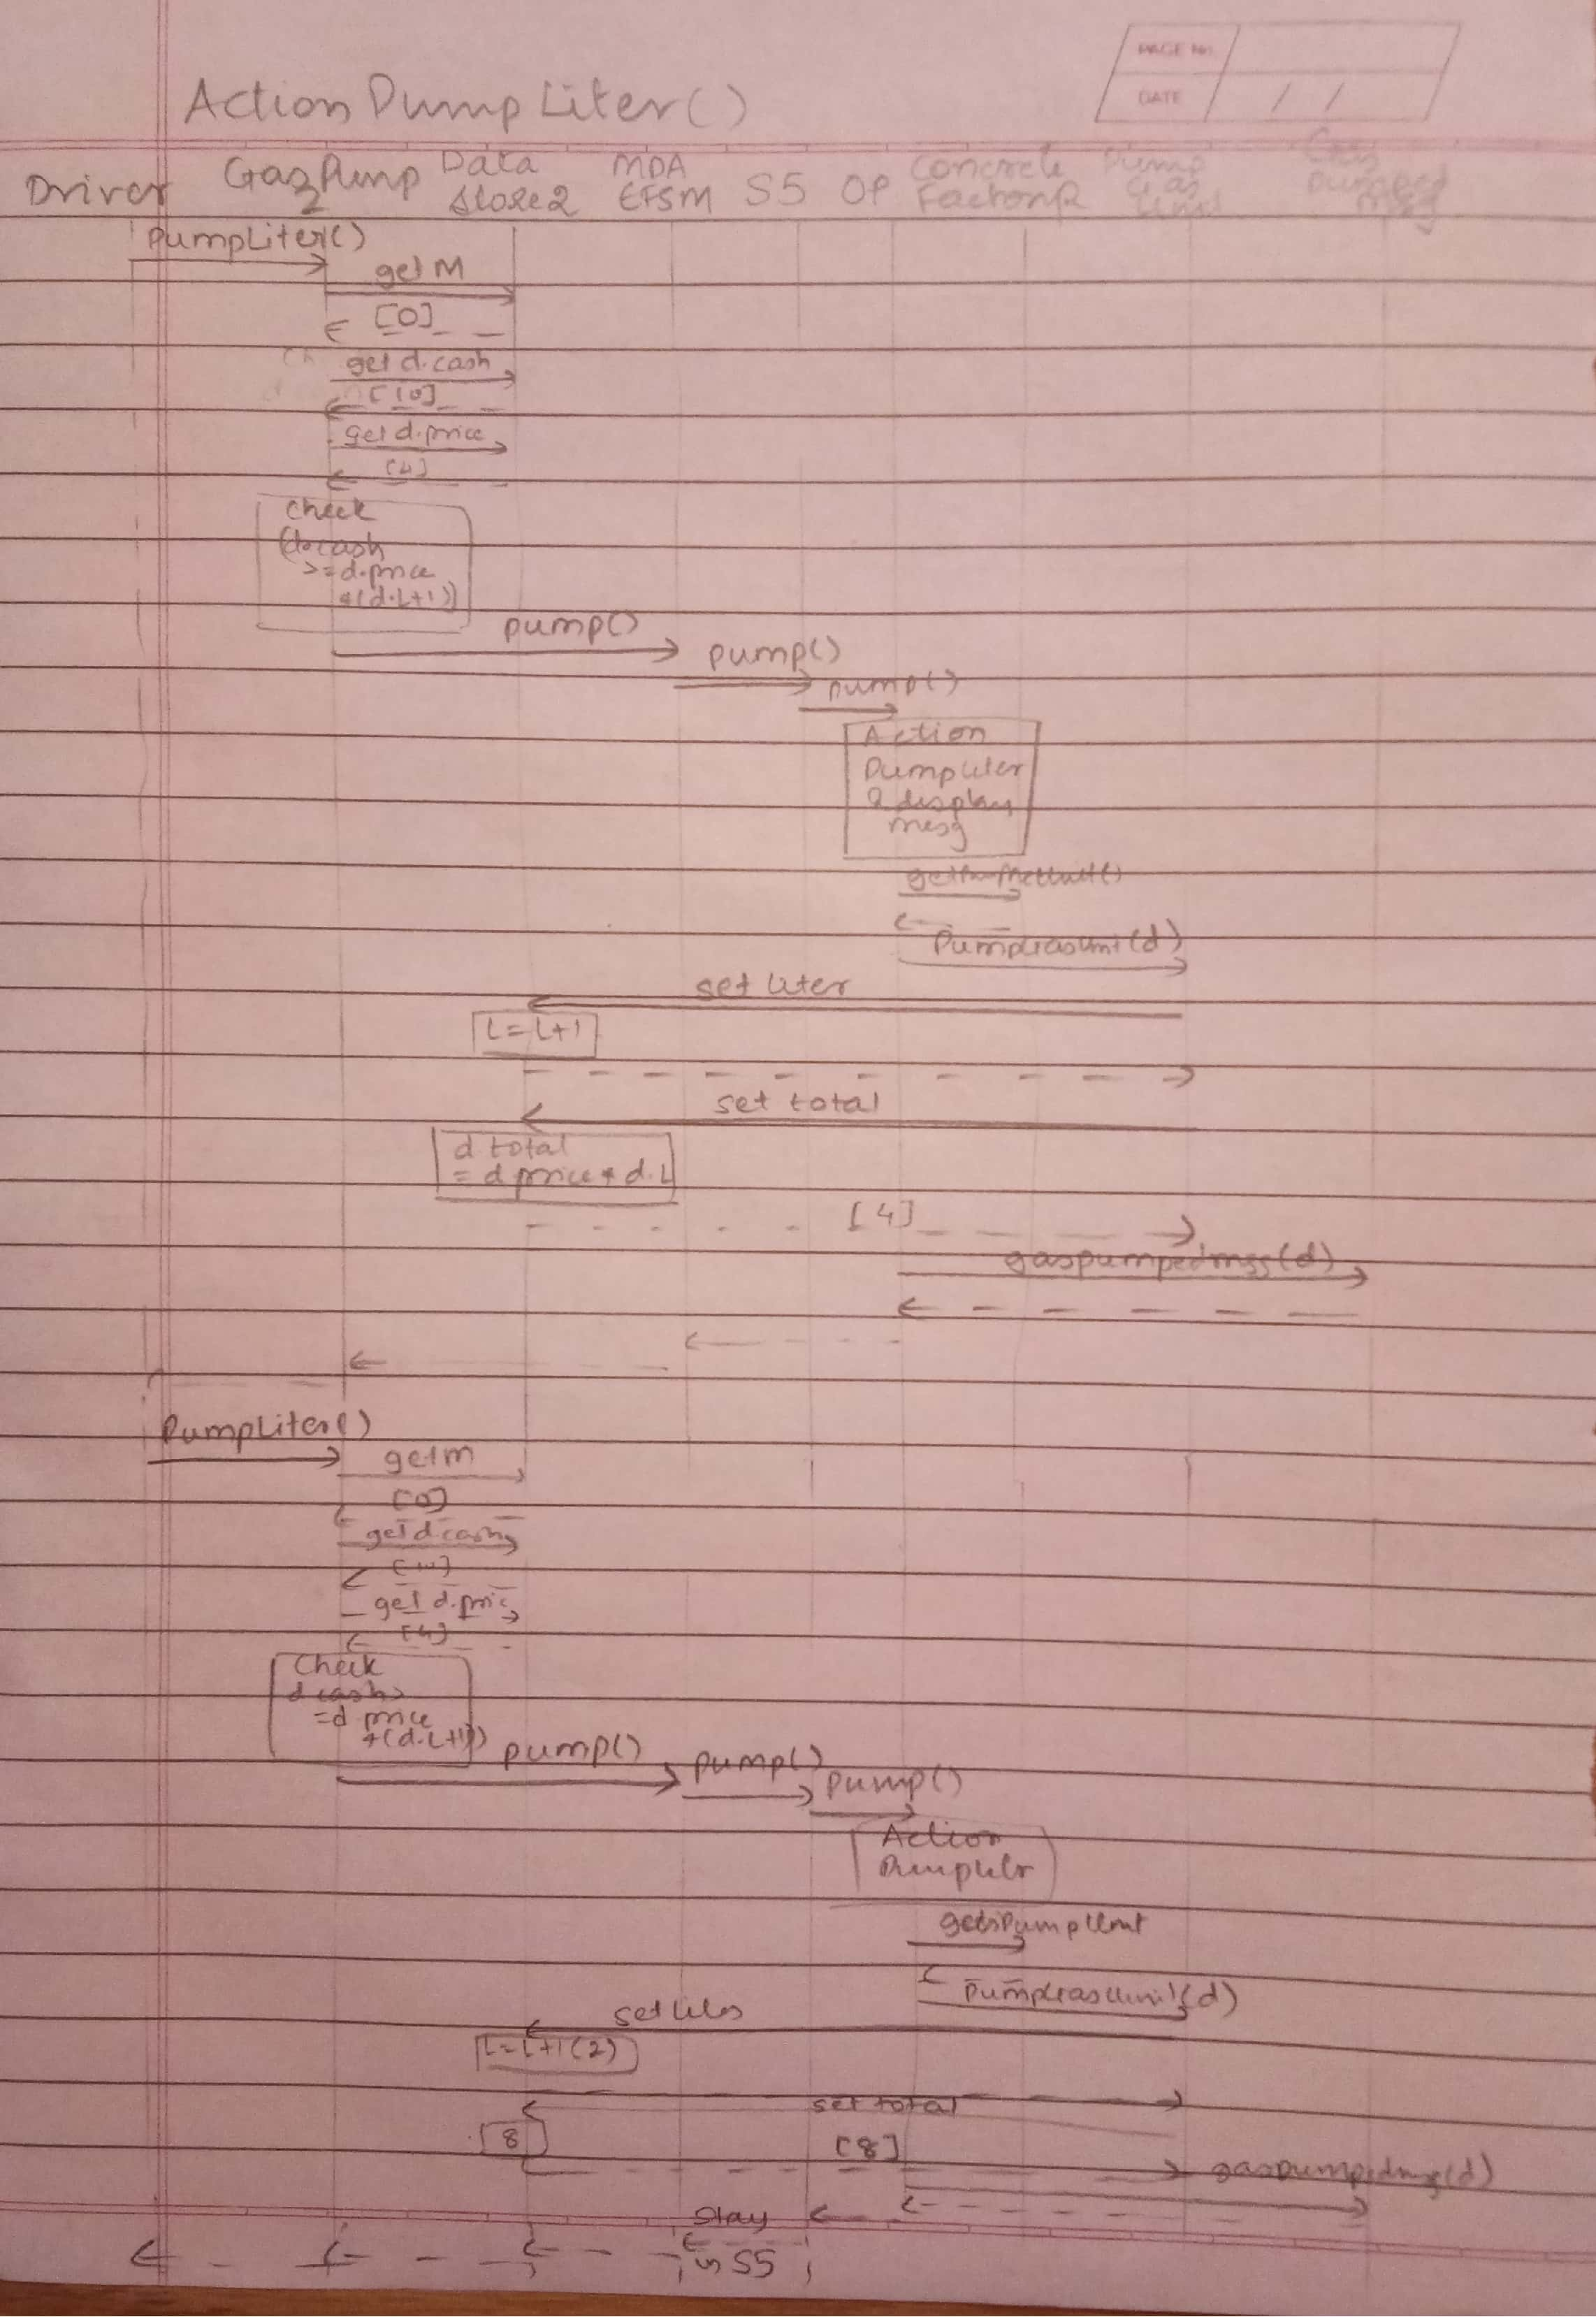 PAGE No.
DATE / /
Action Pump Liter()
Driver GasPump 2 Data Store2 MDA EFSM S5 OP Concrete Factory2 Pump Gas Unit Gas Pumped Msg
PumpLiter()
get M
[0]
get d.cash
[10]
get d.price
[4]
Check
(d.cash
>= d.price
*(d.L+1))
pump()
pump()
pump()
Action
PumpLiter
& display
mesg
PumpGasUnit(d)
set liter
L=L+1
set total
d total
= d price * d.L
[4]
gaspumpedmsg(d)
PumpLiter()
getm
[0]
get d cash
[10]
get d.pric
[4]
Check
d cash >
=d price
*(d.L+1))
pump()
pump()
pump()
Action
PumpLiter
PumpGasUnit(d)
L=L+1(2)
set total
[8]
[8]
gaspumpedmsg(d)
Stay
in S5